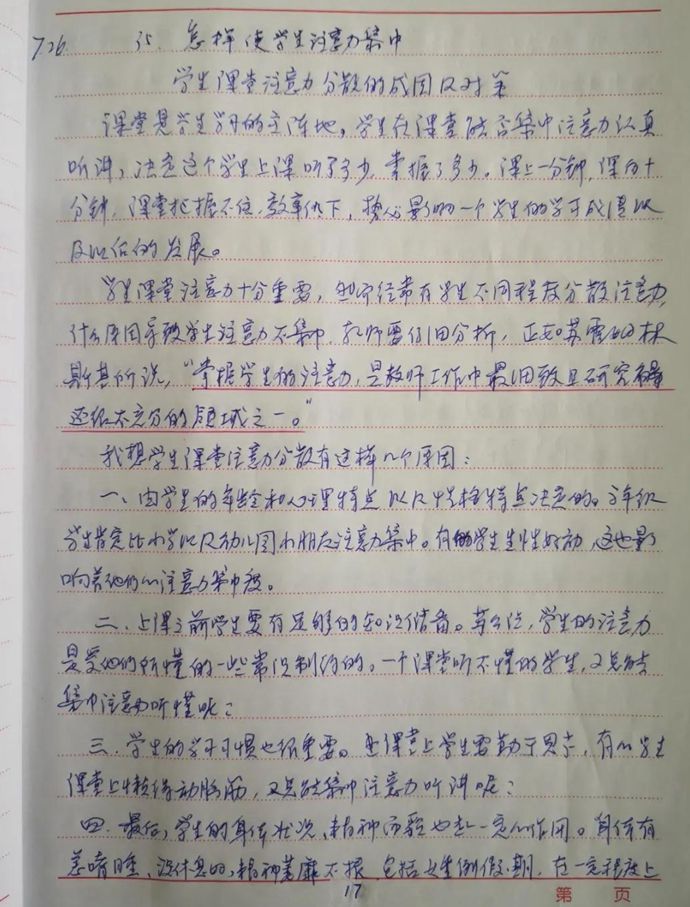 7.26 35. 怎样使学生注意力集中
学生课堂注意力分散的成因及对策
课堂是学生学习的主阵地。学生在课堂能否集中注意力认真
听讲,决定这个学生上课听了多少,掌握了多少。课上一分钟,课后十
分钟,课堂把握不住,效率低下,势必影响一个学生的学习成绩以
及以后的发展。
学生课堂注意力十分重要,但常经常有学生不同程度分散注意力,
什么原因导致学生注意力不集中,教师要仔细分析,正如苏霍姆林
斯基所说,“掌握学生的注意力,是教师工作中最细致且研究得
还很不充分的领域之一。”
我想学生课堂注意力分散有这样几个原因:
一、由学生的年龄和心理特点以及性格特点决定的。高年级
学生肯定比小学以及幼儿园小朋友注意力集中。有的学生生性好动,这也影
响着他们的注意力集中度。
二、上课之前学生要有足够的知识储备。算公论,学生的注意力
是受他们所懂的一些常识制约的。一个课堂听不懂的学生,又怎能
集中注意力听懂呢?
三、学生的学习习惯也很重要。在课堂上学生要勤于思考,有的学生
课堂上懒得动脑筋,又怎能集中注意力听讲呢?
四、最后,学生的身体状况、精神面貌也起一定的作用。身体有
恙嗜睡、没休息好,精神萎靡不振,包括女生例假期,在一定程度上
17
第 页